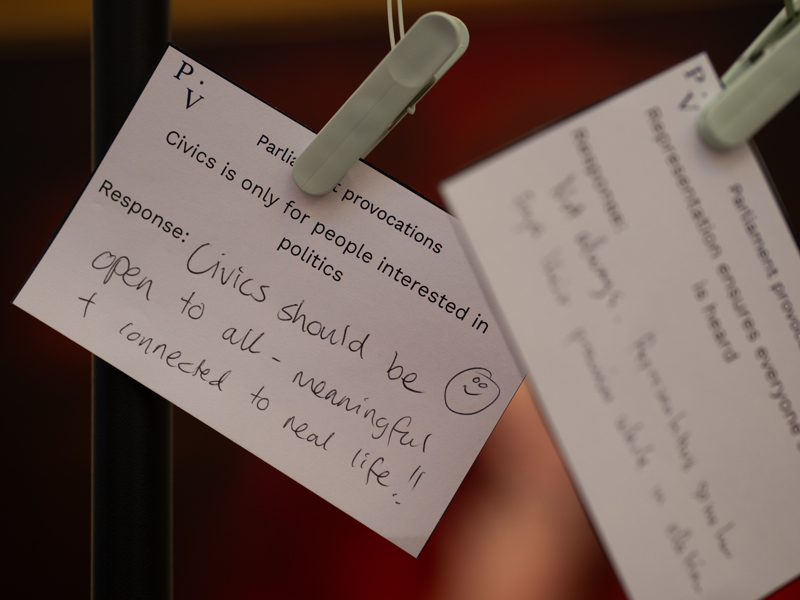 P.
V
Parliament provocations
Civics is only for people interested in
politics
Response: Civics should be
open to all - meaningful
+ connected to real life!!
P.
V
Parliament provoc
Representation ensures everyone
is heard
Response:
Not always.